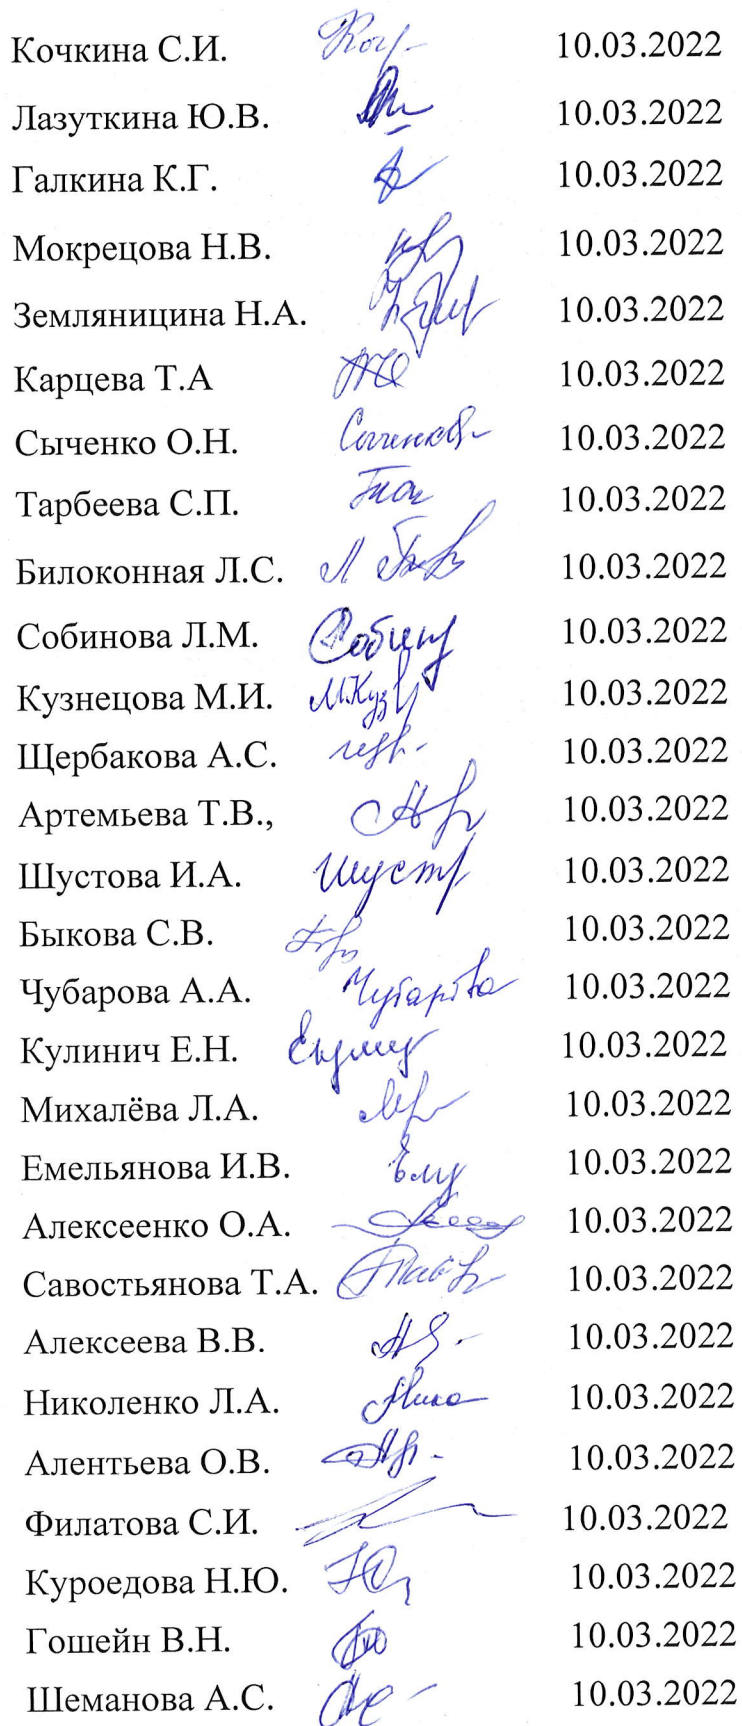 Кочкина С.И. 10.03.2022
Лазуткина Ю.В. 10.03.2022
Галкина К.Г. 10.03.2022
Мокрецова Н.В. 10.03.2022
Земляницина Н.А. 10.03.2022
Карцева Т.А 10.03.2022
Сыченко О.Н. 10.03.2022
Тарбеева С.П. 10.03.2022
Билоконная Л.С. 10.03.2022
Собинова Л.М. 10.03.2022
Кузнецова М.И. 10.03.2022
Щербакова А.С. 10.03.2022
Артемьева Т.В., 10.03.2022
Шустова И.А. 10.03.2022
Быкова С.В. 10.03.2022
Чубарова А.А. Чубарова 10.03.2022
Кулинич Е.Н. 10.03.2022
Михалёва Л.А. 10.03.2022
Емельянова И.В. 10.03.2022
Алексеенко О.А. 10.03.2022
Савостьянова Т.А. 10.03.2022
Алексеева В.В. 10.03.2022
Николенко Л.А. 10.03.2022
Алентьева О.В. 10.03.2022
Филатова С.И. 10.03.2022
Куроедова Н.Ю. 10.03.2022
Гошейн В.Н. 10.03.2022
Шеманова А.С. 10.03.2022